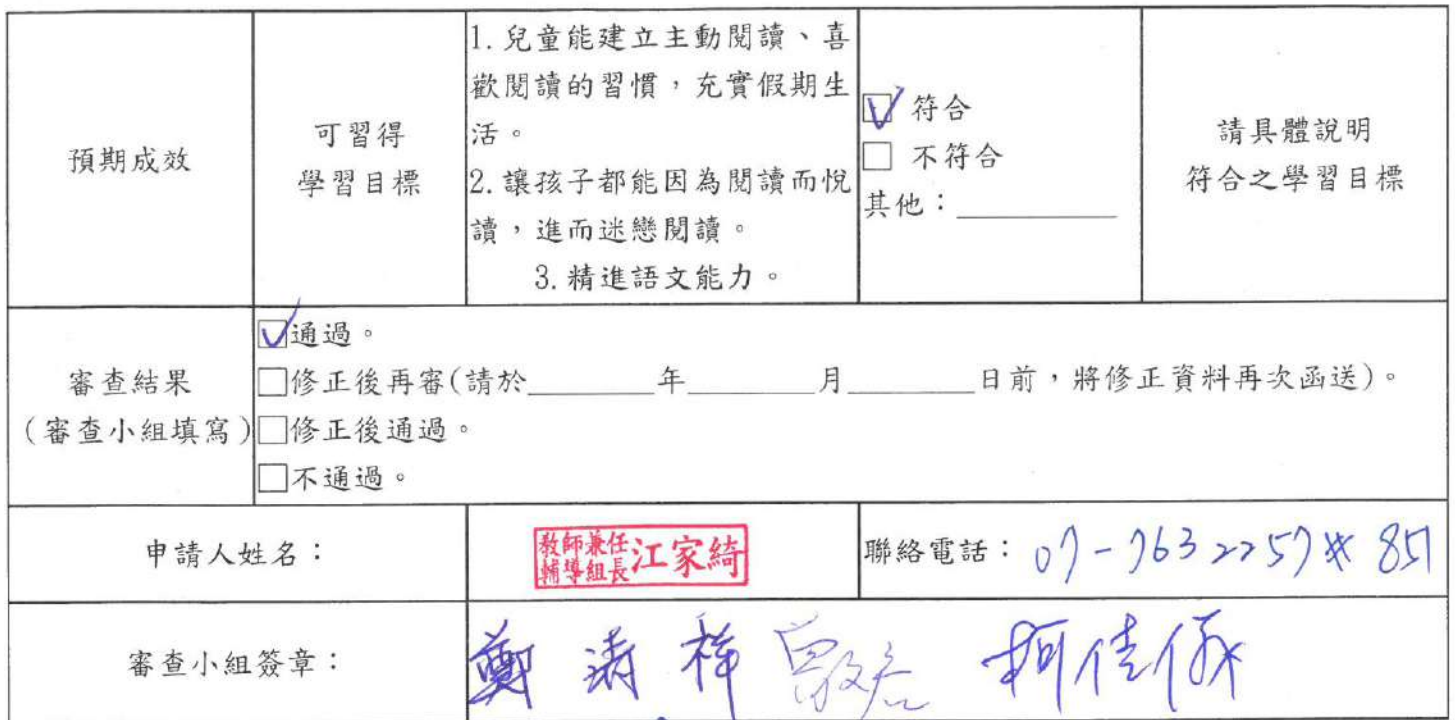 預期成效
可習得
學習目標
1. 兒童能建立主動閱讀、喜
歡閱讀的習慣,充實假期生
活。
2. 讓孩子都能因為閱讀而悅
讀,進而迷戀閱讀。
3. 精進語文能力。
符合
不符合
其他:
請具體說明
符合之學習目標
審查結果
(審查小組填寫)
通過。
修正後再審(請於____年____月____日前,將修正資料再次函送)。
修正後通過。
不通過。
申請人姓名:
教師兼任
輔導組長
江家綺
聯絡電話:07-7632257#851
審查小組簽章:
柯佳儀